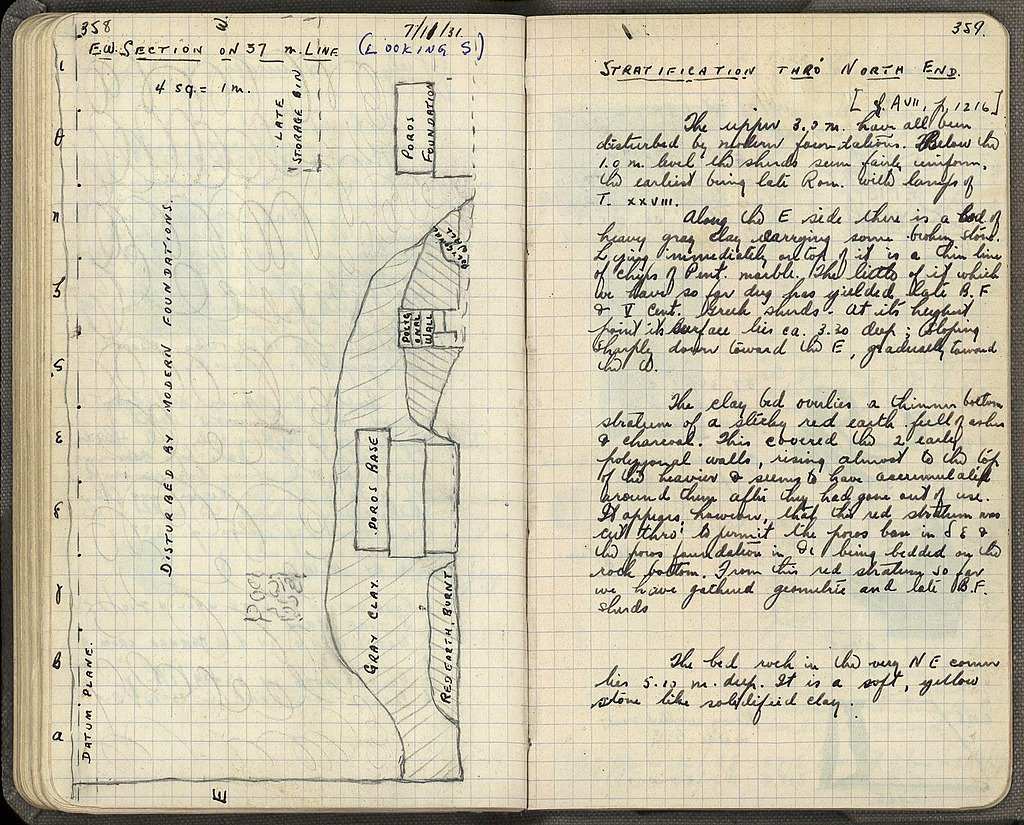 358
W.
7/11/31.
E.W. SECTION ON 37 m. LINE (LOOKING S.)
4 sq. = 1 m.
LATE
STORAGE BIN
POROS
FOUNDATION
ι
θ
η
ζ
ς
ε
δ
γ
β
α
DISTURBED BY MODERN FOUNDATIONS.
POLYGONAL
WALL
POLYG
ONAL
WALL
POROS BASE
GRAY CLAY.
RED EARTH, BURNT
DATUM PLANE.
E
359.
STRATIFICATION THRO' NORTH END.
[cf. A VII, p. 1216]
The upper 3.0 m. have all been
disturbed by modern foundations. Below the
1.0 m. level the sherds seem fairly uniform,
the earliest being late Rom. with lamps of
T. XXVIII.
Along the E side there is a bed of
heavy gray clay carrying some broken stone.
Lying immediately on top of it is a thin line
of chips of Pent. marble. The little of it which
we have so far dug has yielded late B.F
& V cent. Greek sherds. At its highest
point its surface lies ca. 3.30 deep; sloping
sharply down toward the E, gradually toward
the W.
The clay bed overlies a thinner bottom
stratum of a sticky red earth full of ashes
& charcoal. This covered the 2 early
polygonal walls, rising almost to the top
of the heavier & seems to have accumulated
around them after they had gone out of use.
It appears, however, that this red stratum was
cut thro' to permit the poros base in δ ε &
the poros foundation in θι being bedded on the
rock bottom. From this red stratum so far
we have gathered geometric and late B.F.
sherds
The bed rock in the very N E corner
lies 5.10 m. deep. It is a soft, yellow
stone like solidified clay.